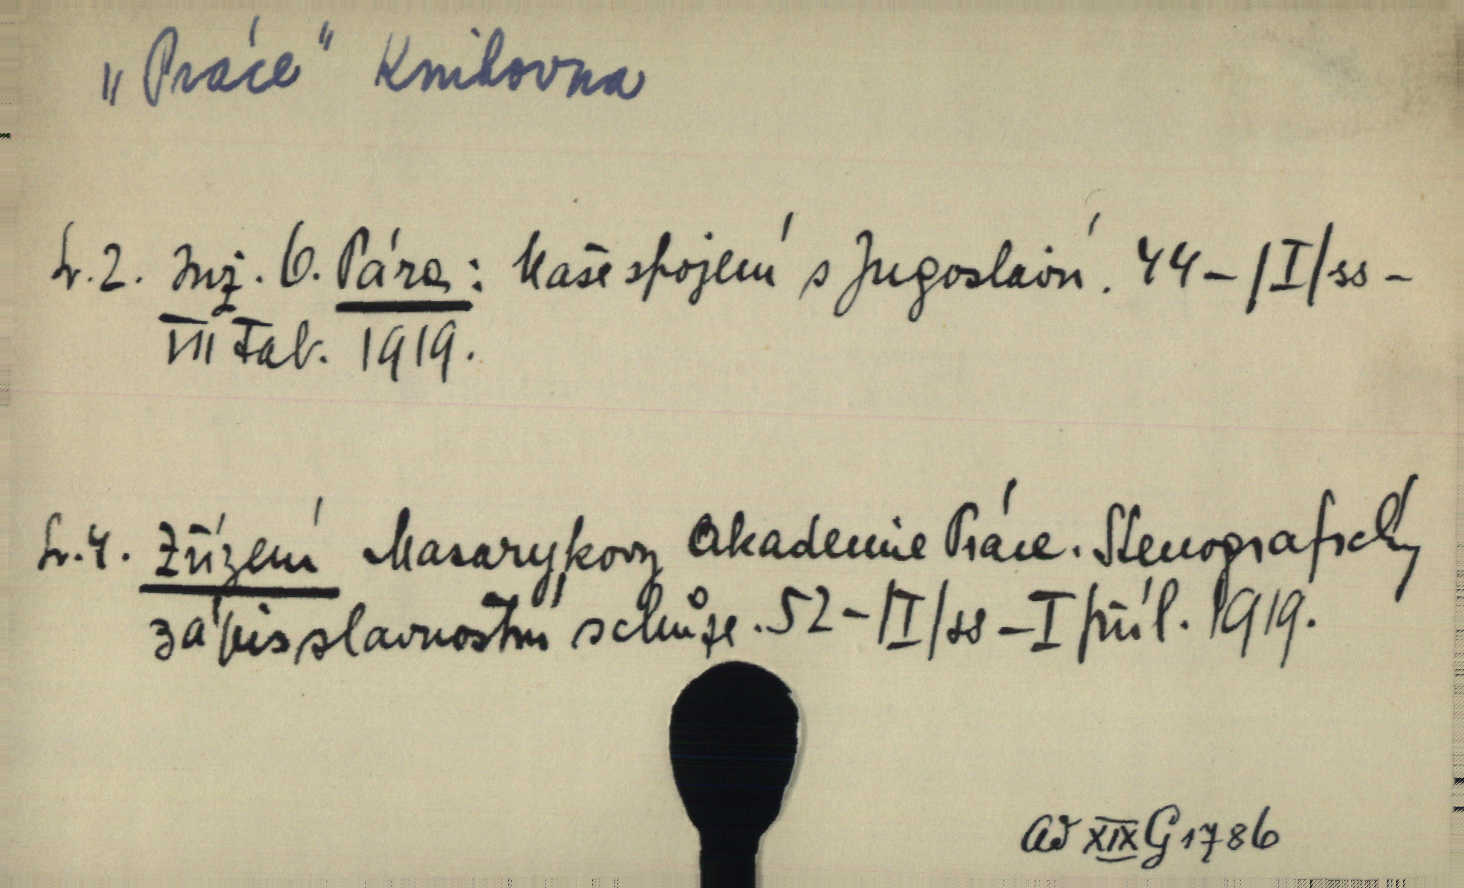 „Práce" Knihovna
Sv. 2. Inž. O. Pára: Naše spojení s Jugoslávií. 44 – /I/ ss –
VII tab. 1919.
Sv. 4. Zřízení Masarykovy Akademie Práce. Stenografický
zápis slavnostní schůze. 52 – /I/ ss – I příl. 1919.
ad XIX G 1786